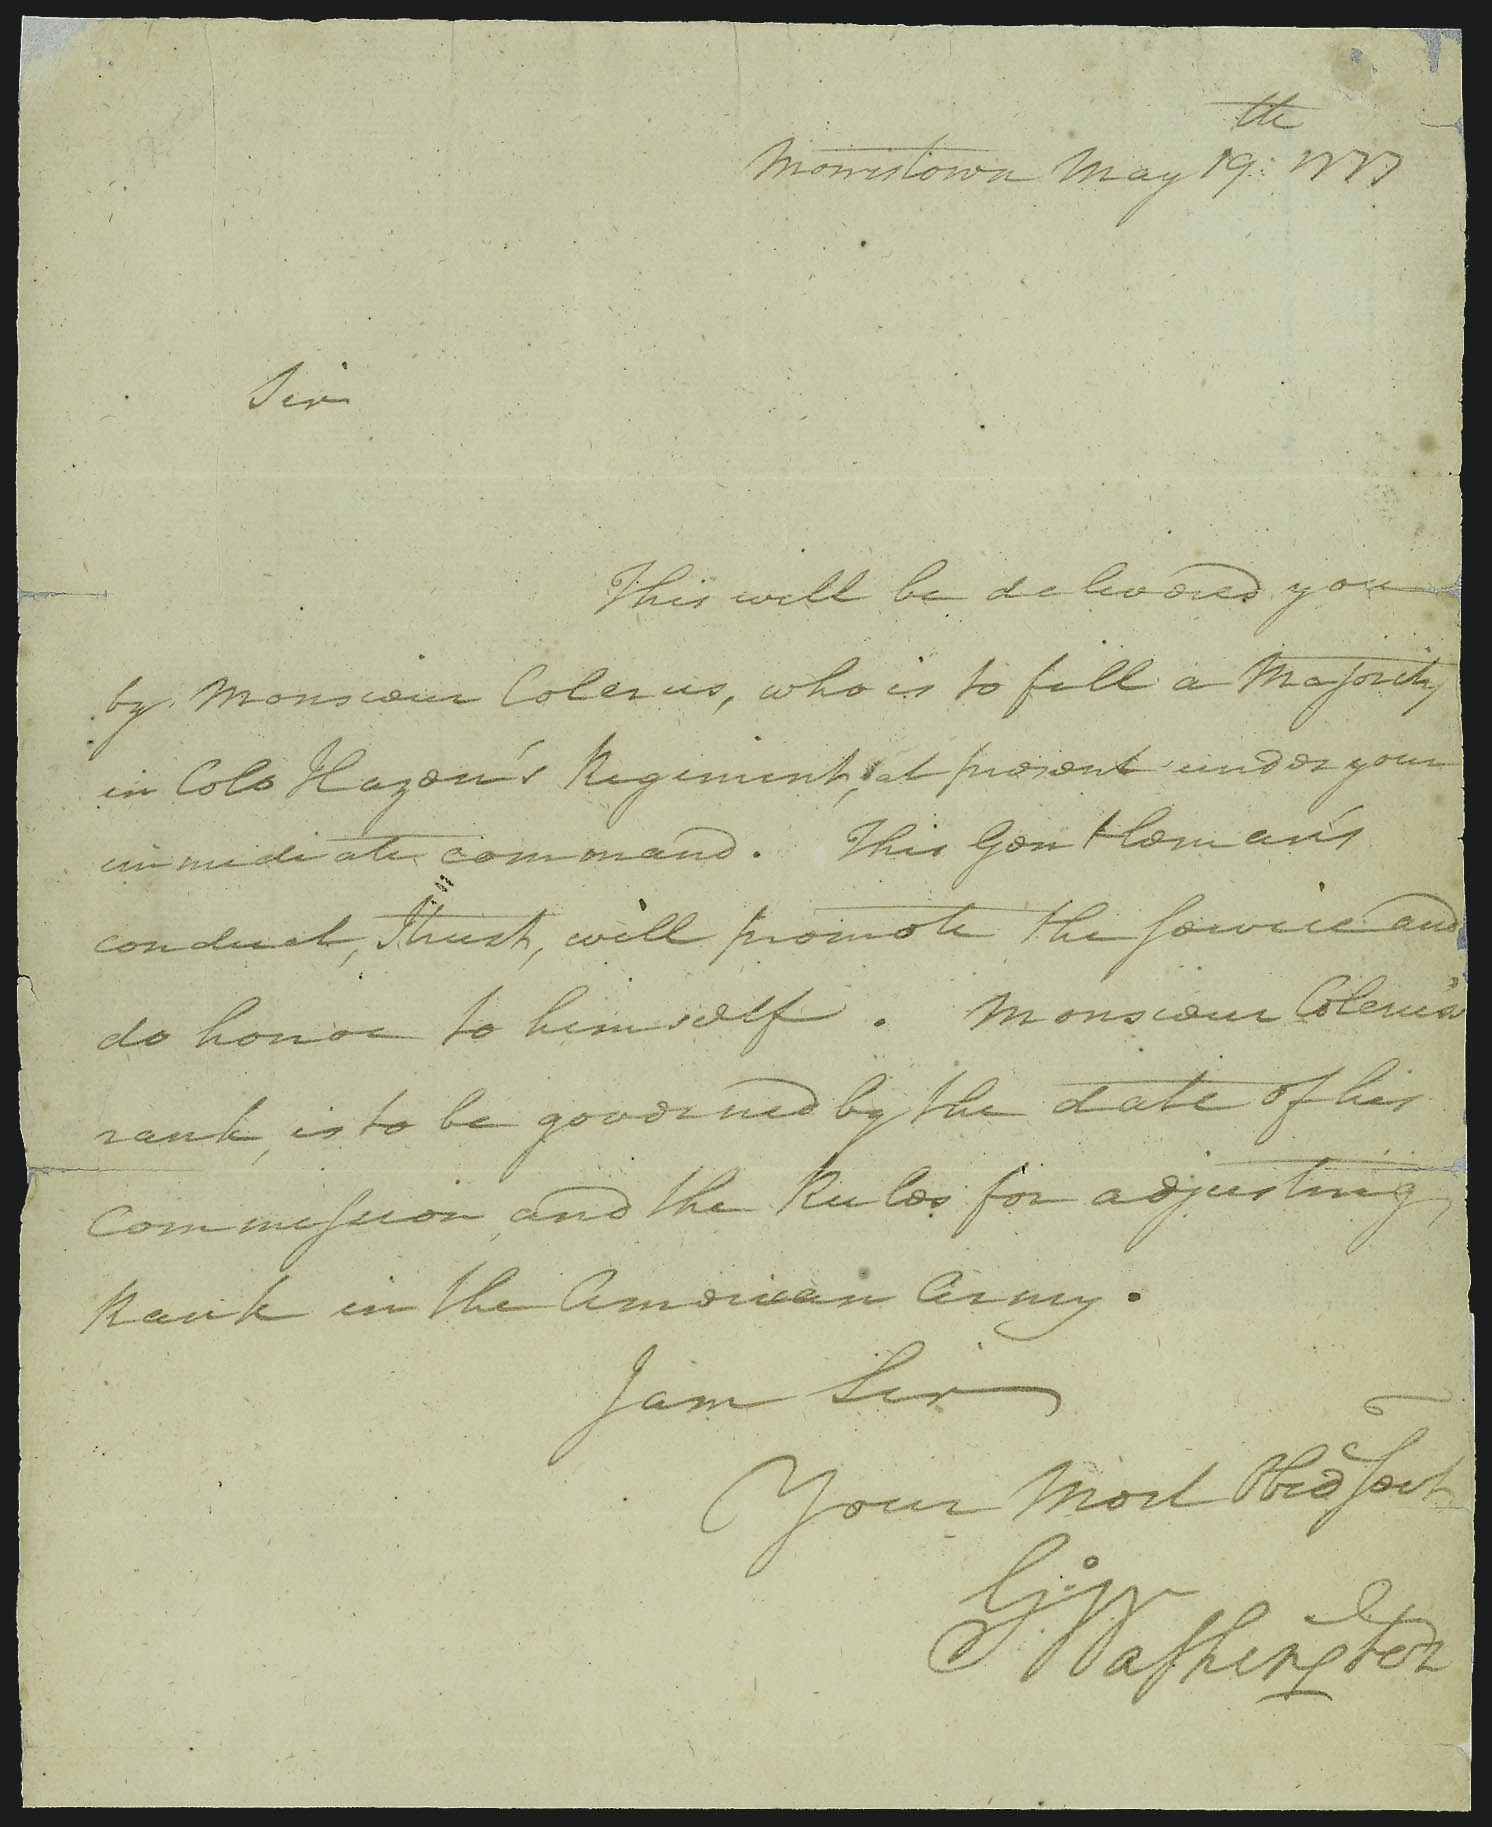 Morristown May 19th: 1777
Sir
This will be delivered you
by Monsieur Colerus, who is to fill a Majority
in Colo Hazen's Regiment, at present under your
immediate command. This Gentleman's
conduct, I trust, will promote the Service and
do honor to himself. Monsieur Colerus's
rank, is to be governed by the date of his
Commission, and the Rules for adjusting
Rank in the American Army.
I am Sir
Your Most Obed Servt
Go: Washington